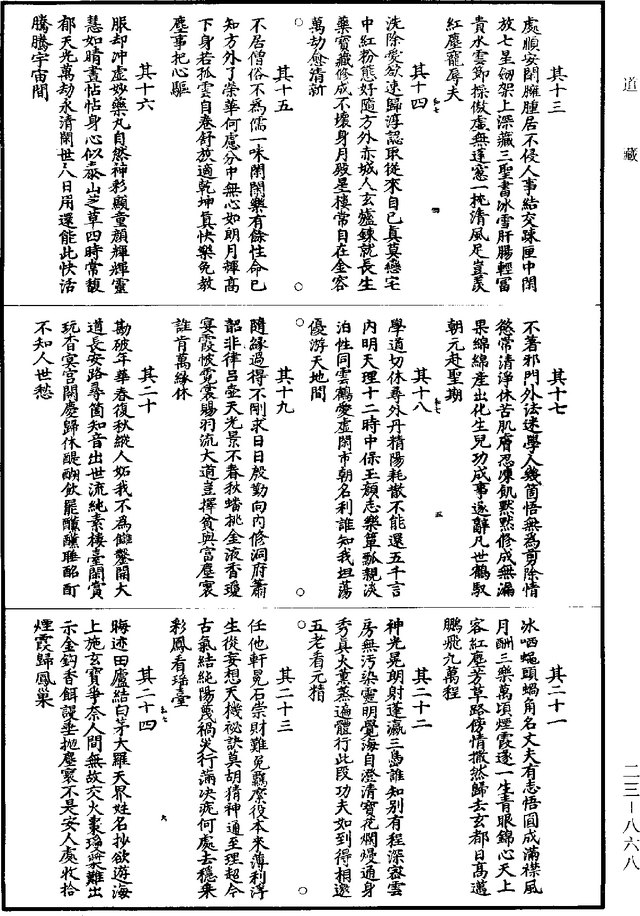 道藏
其十三
處順安閑臃腫居不侵人事結交踈匣中閑
放七星劒架上深藏三聖書冰雪肝腸輕冨
貴水雲節操傲虛無蓬窓一枕清風足豈羨
紅塵寵辱夫
其十四
洗除愛欲速歸淳認取從來自己真莫戀宅
中紅粉態好隨方外赤城人玄爐鍊就長生
藥寶藏修成不壞身月殿星樓常自在金容
萬劫愈清新
其十五
不居僧俗不爲儒一味閑閑樂有餘性命已
知方外了榮華何處分中無心如朗月輝高
下身若孤雲自卷舒放適乾坤真快樂免教
塵事把心驅
其十六
服却冲虛妙藥丸自然神彩顯童顔輝輝靈
慧如晴晝帖帖身心似泰山芝草四時常馥
郁天光萬劫永清閑世人日用還能此快活
騰騰宇宙間
其十七
不著邪門外法迷學人幾箇悟無爲剪除情
慾常清淨休苦肌膚忍凍飢默默修成無漏
果綿綿産出化生兒功成事遂辭凡世鶴馭
朝元赴聖期
其十八
學道切休尋外丹精陽耗散不能還五千言
内明天理十二時中保玉顔志樂簞瓢親淡
泊性同雲鶴愛虛閑市朝名利誰知我坦蕩
優游天地間
其十九
隨緣過得不剛求日日殷勤向内修洞府蕭
韶非律呂壺天光景不春秋蟠桃金液香瓊
宴霞帔霓裳賜羽流大道豈擇貧與富塵寰
誰肯萬緣休
其二十
勘破年華春復秋縱人妬我不爲讎鑿開大
道長安路尋箇知音出世流純素樓臺閑賞
玩杳冥宫闕慶歸休醍醐飲罷醺醺睡酩酊
不知人世愁
其二十一
冰哂蠅頭蝸角名丈夫有志悟圓成滿襟風
月酬三樂萬頃煙霞遂一生青眼錦心天上
容紅塵芳草路傍情撒然歸去玄都日高邁
鵬飛九萬程
其二十二
神光晃朗射蓬瀛三島誰知别有程深密雲
房無污染靈明覺海自澄清寶花爛熳通身
秀真火薰蒸遍體行此段功夫如到得相邀
五老看元精
其二十三
任他軒冕石崇財難免羈縻役本來薄利浮
生從妄想天機祕訣莫胡猜神通至理超今
古氣結純陽蔑禍災行滿決疣何處去穩乗
彩鳳看瑶臺
其二十四
晦迹田廬結白茅大羅天界姓名抄欲遊海
上施玄寶爭奈人間無故交火棗瑶漿難出
示金鈎香餌謾垂抛塵寰不是安人處收拾
煙霞歸鳳巢
二三-八六八